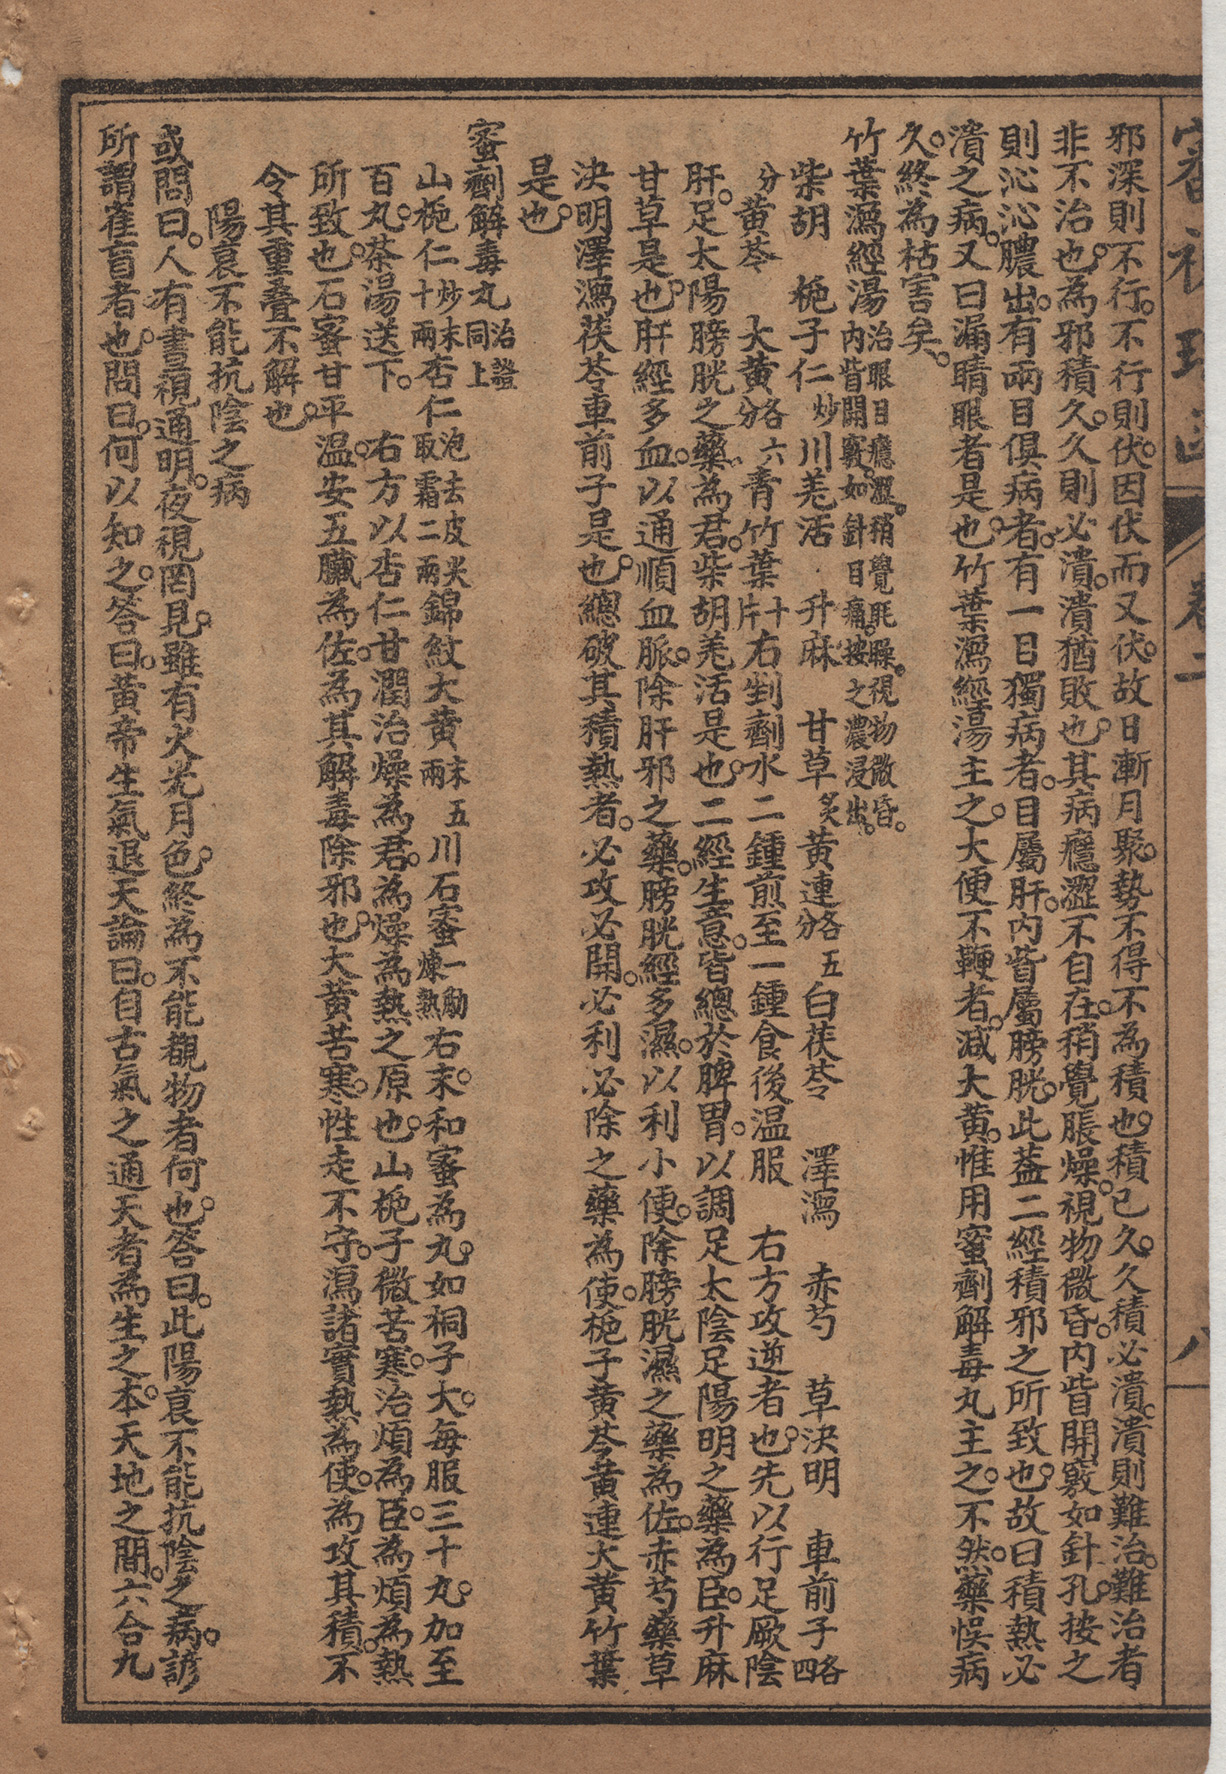 審視瑤函 卷二 八
邪深則不行。不行則伏。因伏而又伏。故日漸月聚。勢不得不為積也。積已久。久積必潰。潰則難治。難治者
非不治也。為邪積久。久則必潰。潰猶敗也。其病癮澀不自在。稍覺脹燥。視物微昏。內眥開竅如針孔。按之
則沁沁膿出。有兩目俱病者。有一目獨病者。目屬肝。內眥屬膀胱。此葢二經積邪之所致也。故曰積熱必
潰之病。又曰漏睛眼者是也。竹葉瀉經湯主之。大便不鞕者。減大黃。惟用蜜劑解毒丸主之。不然藥悞病
久。終為枯害矣。
竹葉瀉經湯治眼目癮澀。稍覺眊矂。視物微昏。內眥開竅。如針目痛。按之濃浸出。
柴胡 梔子仁炒 川羌活 升麻 甘草炙 黃連各五分 白茯苓 澤瀉 赤芍 草決明 車前子各四
分 黃芩 大黃各六分 青竹葉十片 右剉劑水二鍾煎至一鍾食後温服 右方攻逆者也。先以行足厥陰
肝。足太陽膀胱之藥。為君。柴胡羌活是也。二經生意。皆總於脾胃。以調足太陰足陽明之藥為臣。升麻
甘草是也。肝經多血。以通順血脈。除肝邪之藥。膀胱經多濕。以利小便。除膀胱濕之藥為佐。赤芍藥草
決明澤瀉茯苓車前子是也。總破其積熱者。必攻必開。必利必除之藥為使。梔子黃芩黃連大黃竹葉
是也。
蜜劑解毒丸治證同上
山梔仁炒末十兩 杏仁泡去皮尖取霜二兩 錦紋大黃末五兩 川石蜜一觔煉熟 右末。和蜜為丸。如桐子大。每服三十丸。加至
百丸。茶湯送下。 右方以杏仁甘潤治燥為君。為燥為熱之原也。山梔子微苦寒。治煩為臣。為煩為熱
所致也。石蜜甘平温。安五臟為佐。為其解毒除邪也。大黃苦寒。性走不守。瀉諸實熱為使。為攻其積。不
令其重叠不解也。
陽衰不能抗陰之病
或問曰。人有晝視通明。夜視罔見。雖有火光月色。終為不能覩物者何也。答曰。此陽衰不能抗陰之病。諺
所謂雀盲者也。問曰。何以知之。答曰。黃帝生氣退天論曰。自古氣之通天者為生之本。天地之間。六合九